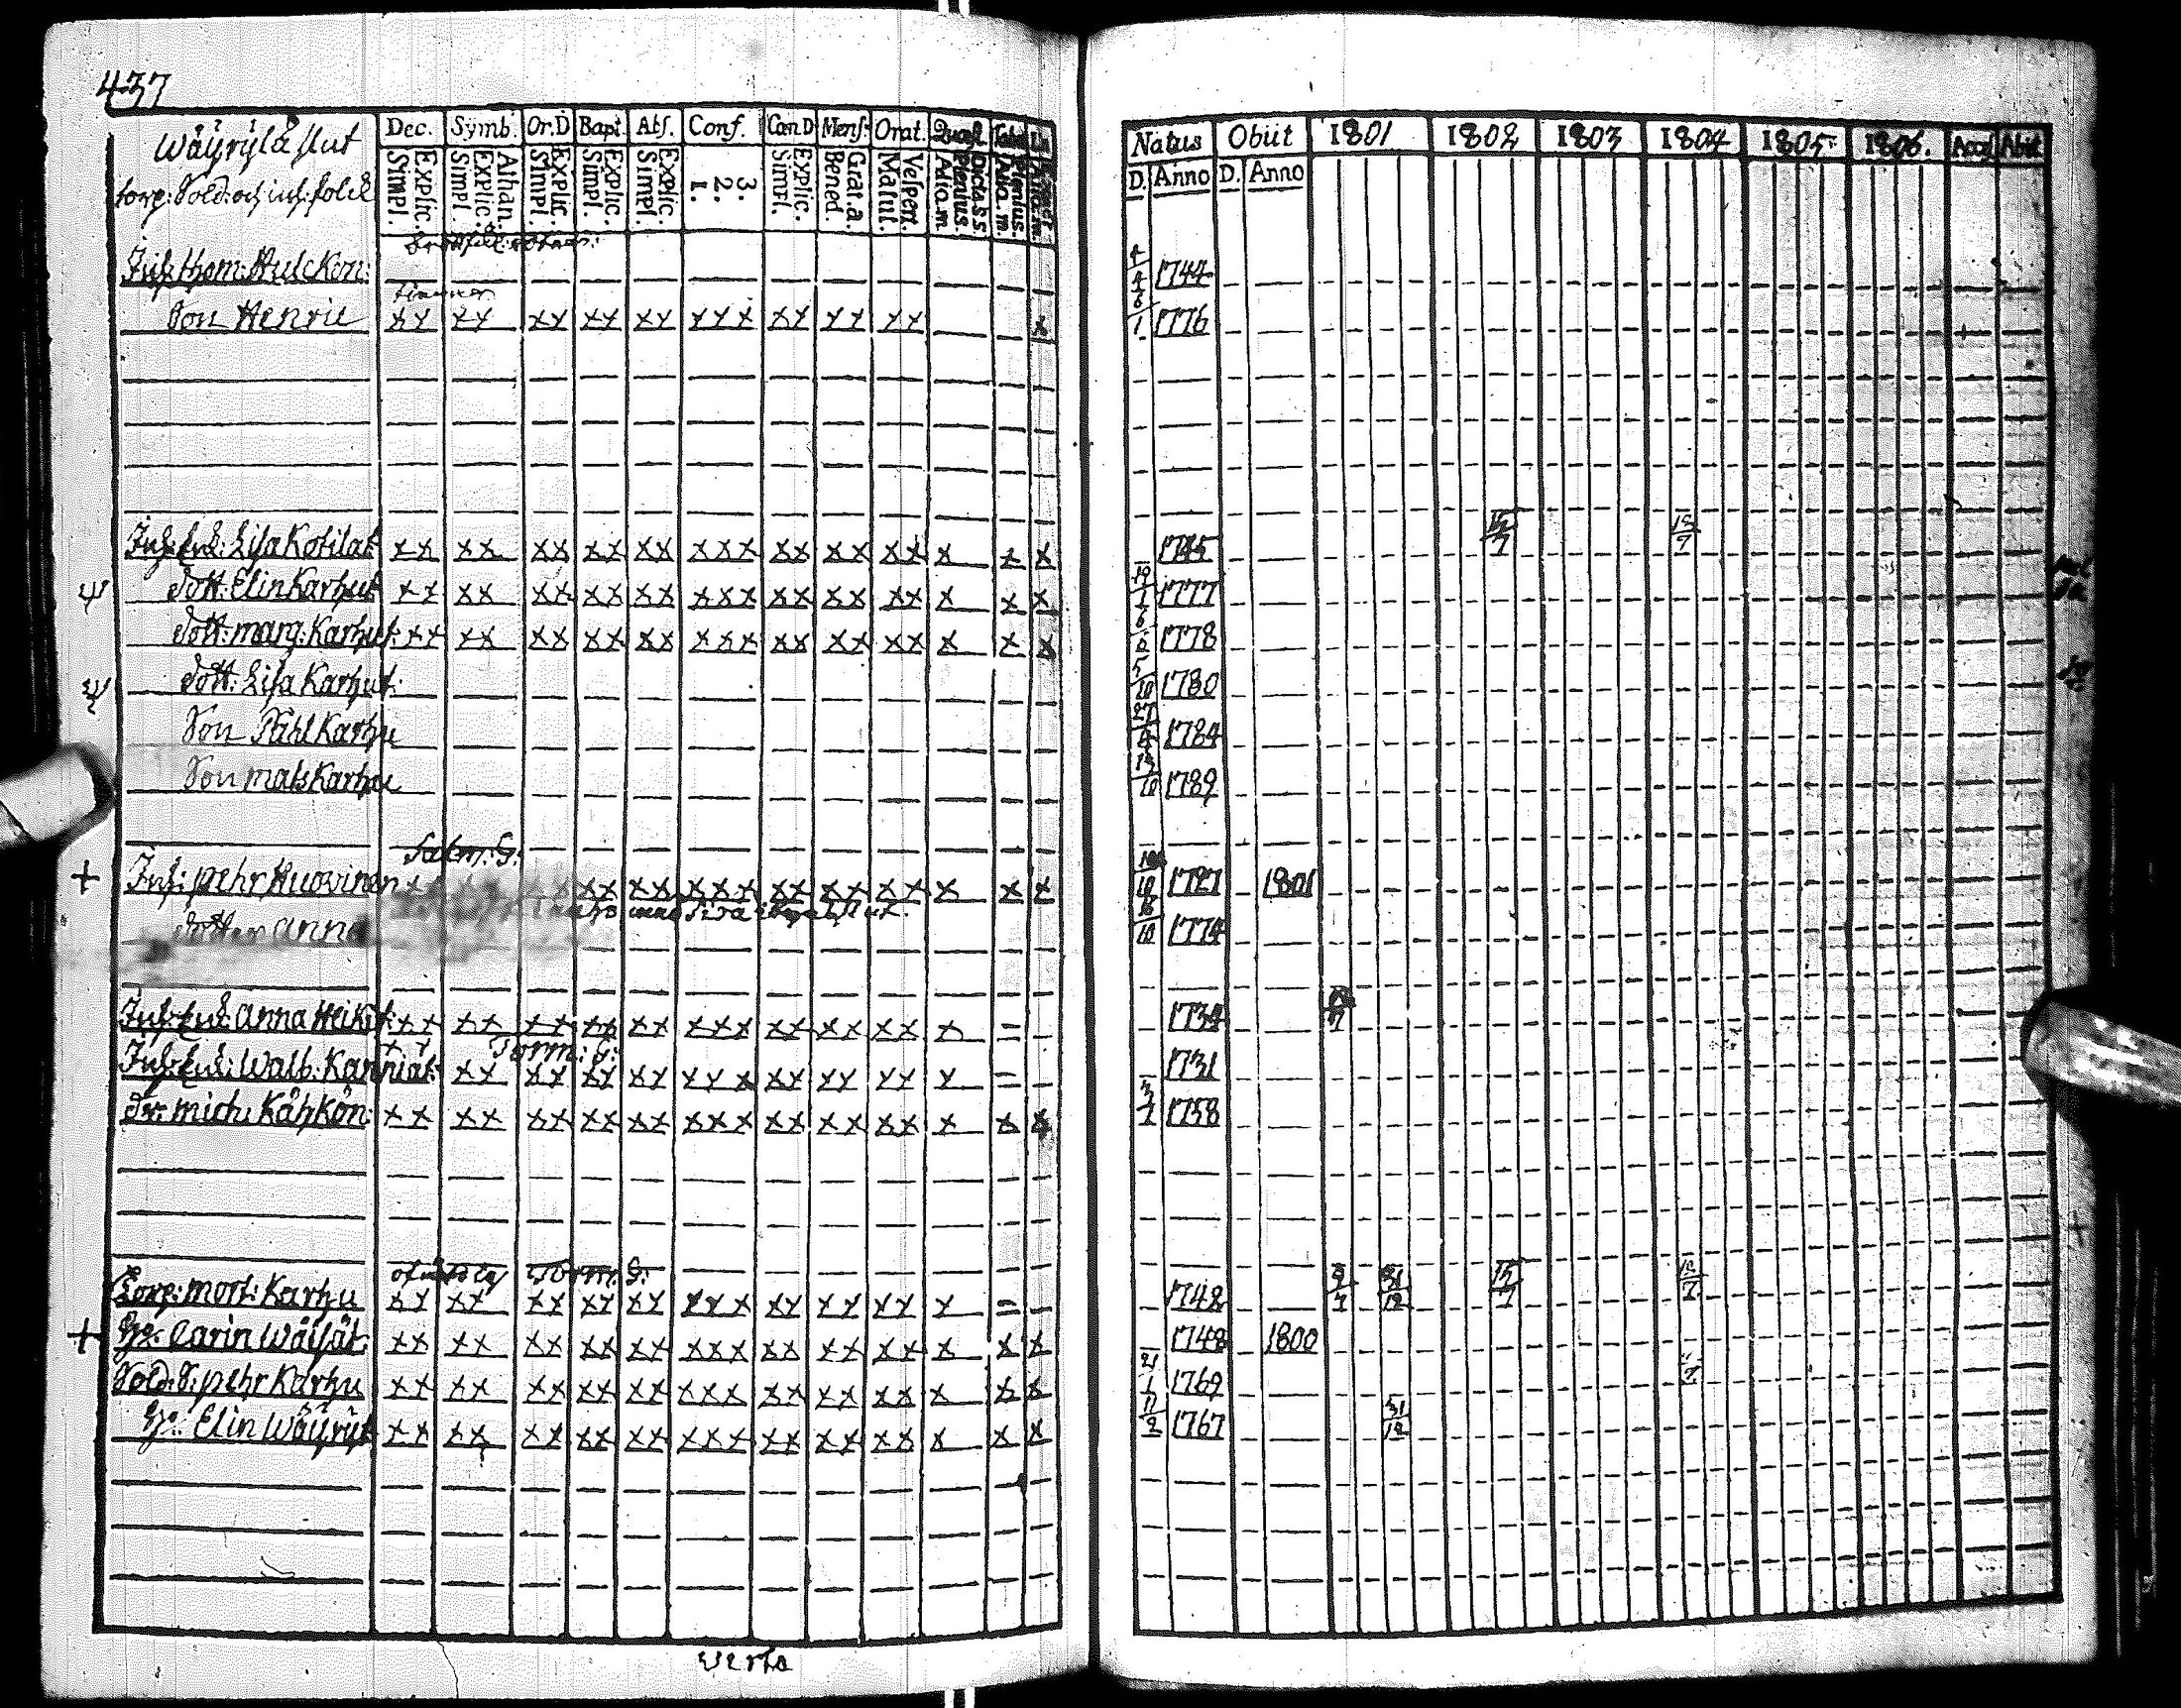 437
Wäyrylä slut
torp: Sold: och inh: folck
Dec. Symb. Or.D Bapt. Abs. Conf. Can D Mens: Orat.
Explic. Simpl. Athan. Explic. Simpl. Explic. Simpl. Explic. Simpl. Explic. Simpl. 3. 2. 1. Explic. Simpl. Grat. a. Bened. Vespert. Matut. Dicta s.s. Plenius. Adia.m. Plenius. Adia.m.
Natus Obiit 1801 1802 1803 1804 1805 1806. Acces Abit
D. Anno D. Anno
Inh: thom: Hulckon: 4/4 1744
Son Henric xx xx xx xx xx xxx xx xx xx x 1776
Inh: Enk: Lisa Kotilat xx xx xx xx xx xxx xx xx xx x x x 1745 15/7
dott: Elin Karhut xx xx xx xx xx xxx xx xx xx x x x 1777
dott: marg: Karhut: xx xx xx xx xx xxx xx xx xx x x x 1778
dott: Lisa Karhut: 1780
Son Påhl Karhu 27 1784
Son mats Karhu 1789
Salm: G:
+ Inh: pehr Huovinen xx xx xx xx xx xxx xx xx xx x x x 1727 1801
dotter anna 1774
Inh: Enk: anna Heikit: xx xx xx xx xx xxx xx xx xx x = 1734
Torm: G:
Inh: Enk: Walb: Kanniat: xx xx xx xx xx xxx xx xx xx x = 1731
Dr: mich: Kåhkön: xx xx xx xx xx xxx xx xx xx x x x 1758
Torm: G:
Torp: mort: Karhu xx xx xx xx xx xxx xx xx xx x = 1742 31/12 15/7
+ H: Carin Wäisät: xx xx xx xx xx xxx xx xx xx x x x 1748 1800
Sold: S: pehr Karhu xx xx xx xx xx xxx xx xx xx x x x 21/1 1769
H: Elin Wäyryt xx xx xx xx xx xxx xx xx xx x x x 11/2 1767 31/12
verte